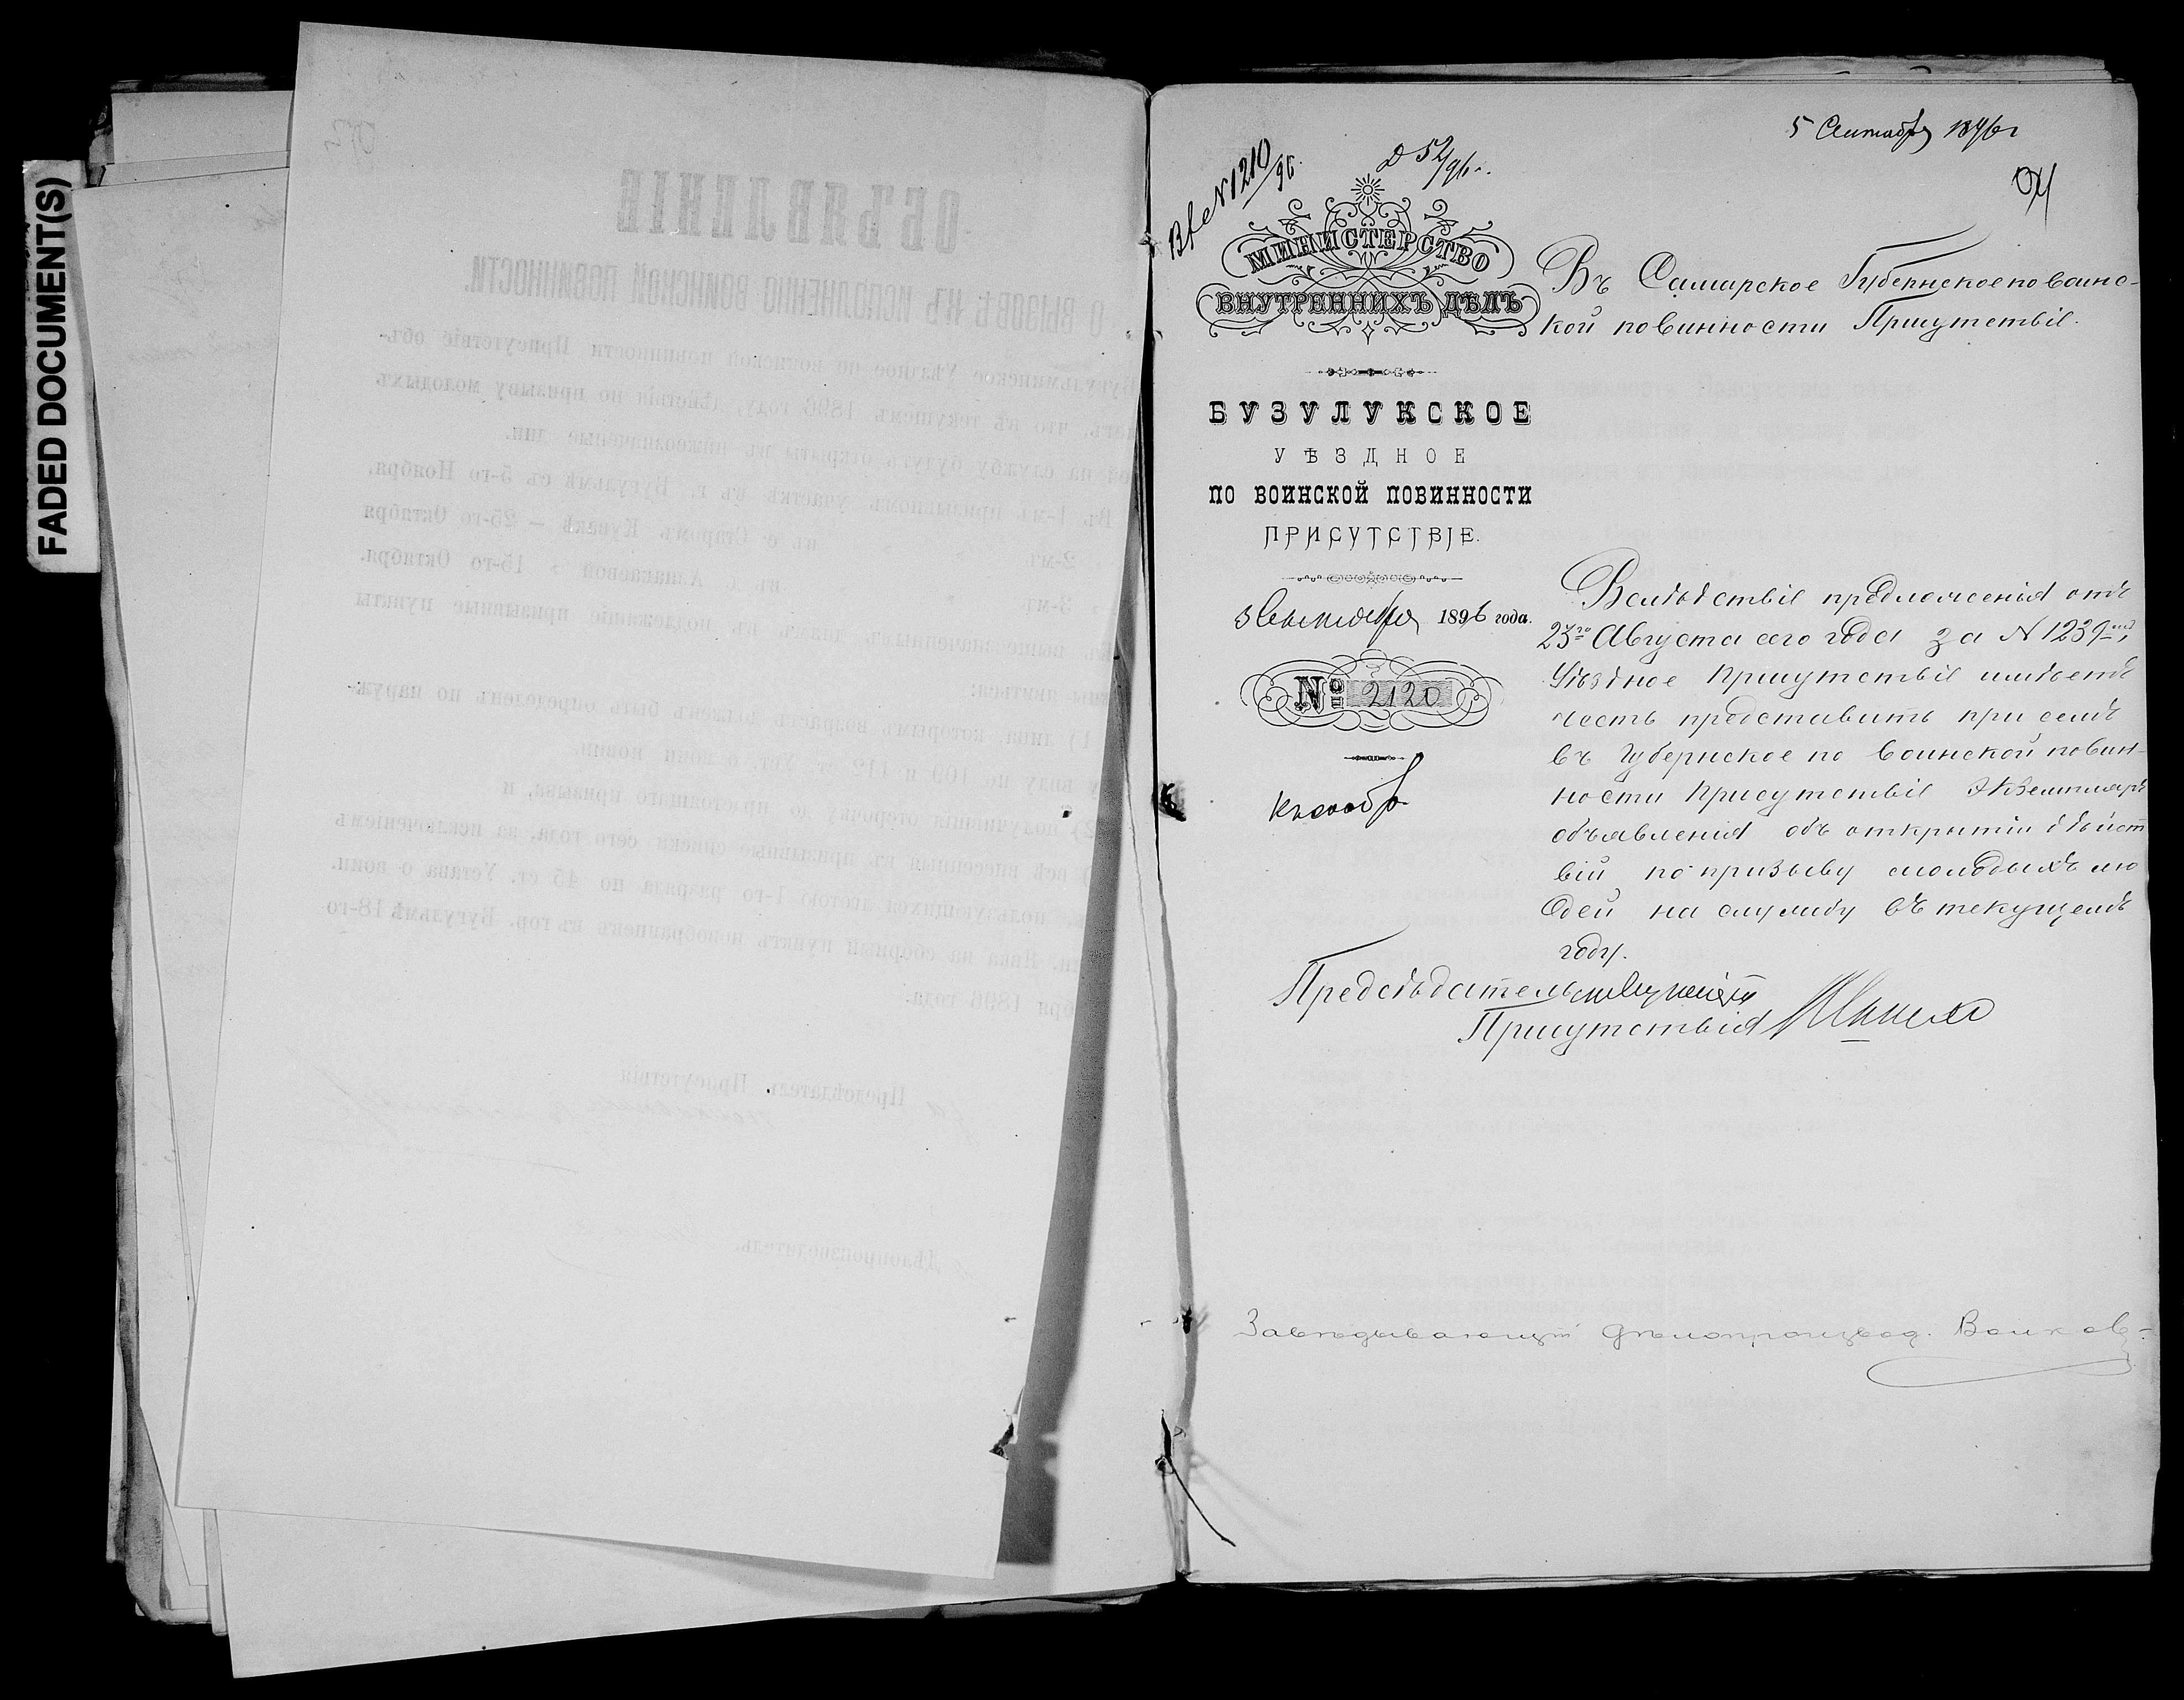 FADED DOCUMENT(S)
ОБЪЯВЛЕНІЕ
О ВЫЗОВѢ КЪ ИСПОЛНЕНІЮ ВОИНСКОЙ ПОВИННОСТИ.
Бугульминское Уѣздное по воинской повинности Присутствіе объ-
что въ текущемъ 1896 году, дѣйствія по призыву молодыхъ
на службу будутъ открыты въ нижеозначенные дни.
Въ 1-мъ призывномъ участкѣ въ г. Бугульмѣ съ 5-го Ноября,
2-мъ въ с. Старомъ Кувакѣ — 25-го Октября
3-мъ въ с. Азнакаевой 15-го Октября.
вышеозначеннымъ днямъ въ надлежащіе призывные пункты
явиться:
1) лица, которымъ возрастъ долженъ быть опредѣленъ по наруж-
виду по 109 и 119 ст. Уст. о воин. повин.
2) получившія отсрочку до настоящаго призыва, и
всѣ внесенныя въ призывные списки сего года, за исключеніемъ
пользующихся льготою 1-го разряда по 45 ст. Устава о воин.
Явка на сборный пунктъ новобранцевъ въ гор. Бугульмѣ 18-го
1896 года.
Предсѣдатель Присутствія
Дѣлопроизводитель
5 Сентября 1896 г
Вх с N 1210/96
Д 52/96 г.
94
МИНИСТЕРСТВО
ВНУТРЕННИХЪ ДѢЛЪ
БУЗУЛУКСКОЕ
УѢЗДНОЕ
ПО ВОИНСКОЙ ПОВИННОСТИ
ПРИСУТСТВІЕ.
3 Сентября 1896 года.
№ 2120
Въ Самарское Губернское по воинс-
кой повинности Присутствіе.
Вслѣдствіе предложенія отъ
23го Августа сего года за N 1239,
Уѣздное Присутствіе имѣетъ
честь представить при семъ
въ Губернское по воинской повин-
ности Присутствіе экземпляръ
объявленія объ открытіи дѣйст
вій по призыву молодыхъ лю
дей на службу въ текущемъ
году.
Предсѣдательствующій
Присутствія
Завѣдывающій дѣлопроизвод. Волковъ